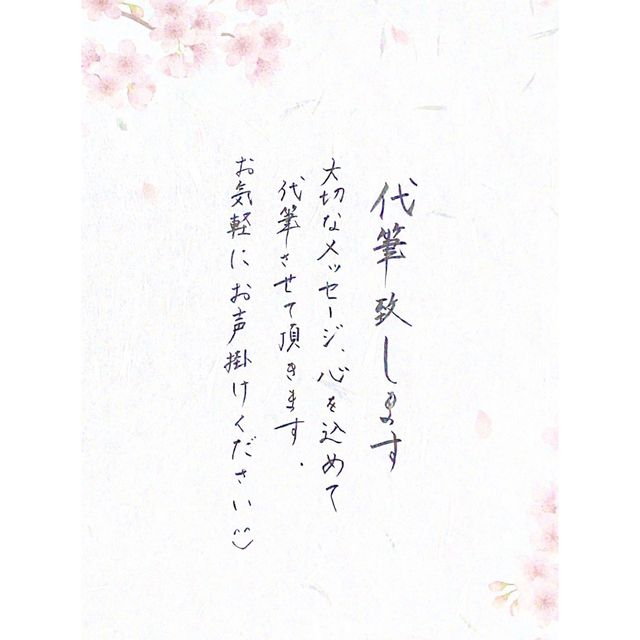 代筆致します
大切なメッセージ、心を込めて
代筆させて頂きます.
お気軽にお声掛けください^^